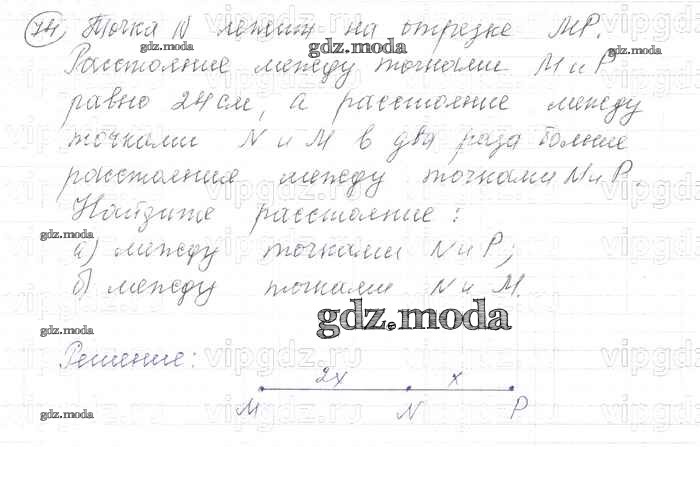 74. Точка N лежит на отрезке MP.
gdz.moda gdz.moda gdz.moda
Расстояние между точками M и P
равно 24 см, а расстояние между
точками N и M в два раза больше
расстояния между точками N и P.
Найдите расстояние:
gdz.moda
а) между точками N и P;
б) между точками N и M.
gdz.moda
gdz.moda
Решение:
2x x
M N P
gdz.moda